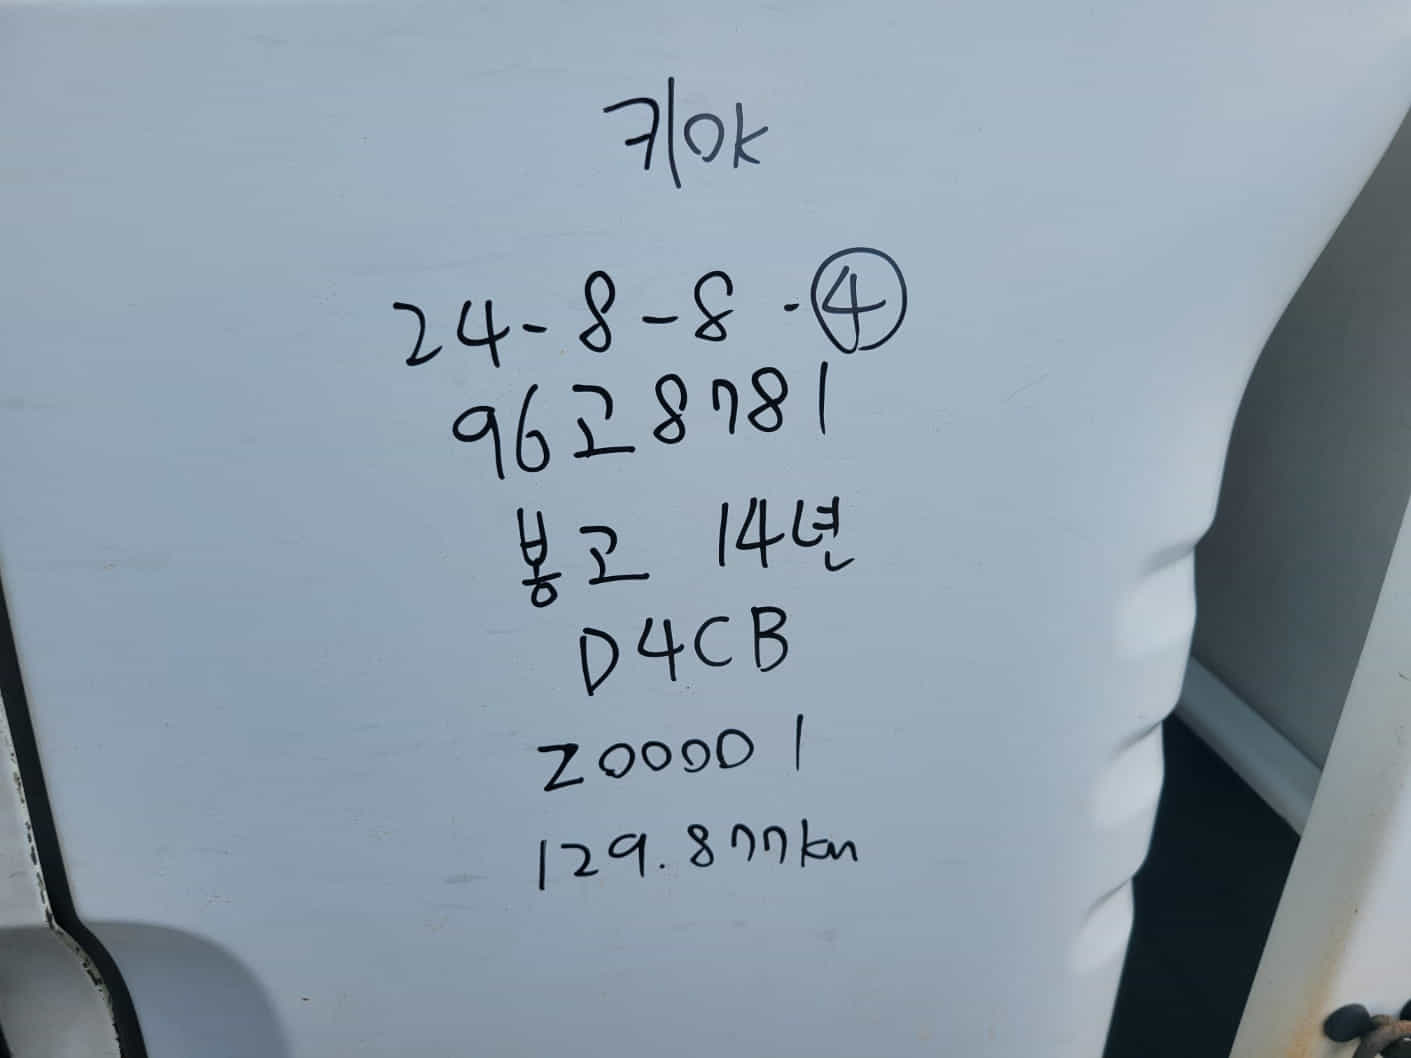 키ok
24-8-8-④
96고8781
봉고 14년
D4CB
Z00001
129.877km